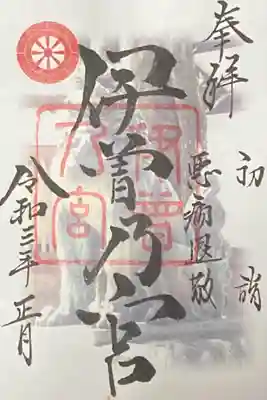 奉拝
初詣
悪病退散
伊曽乃宮
令和三年 正月